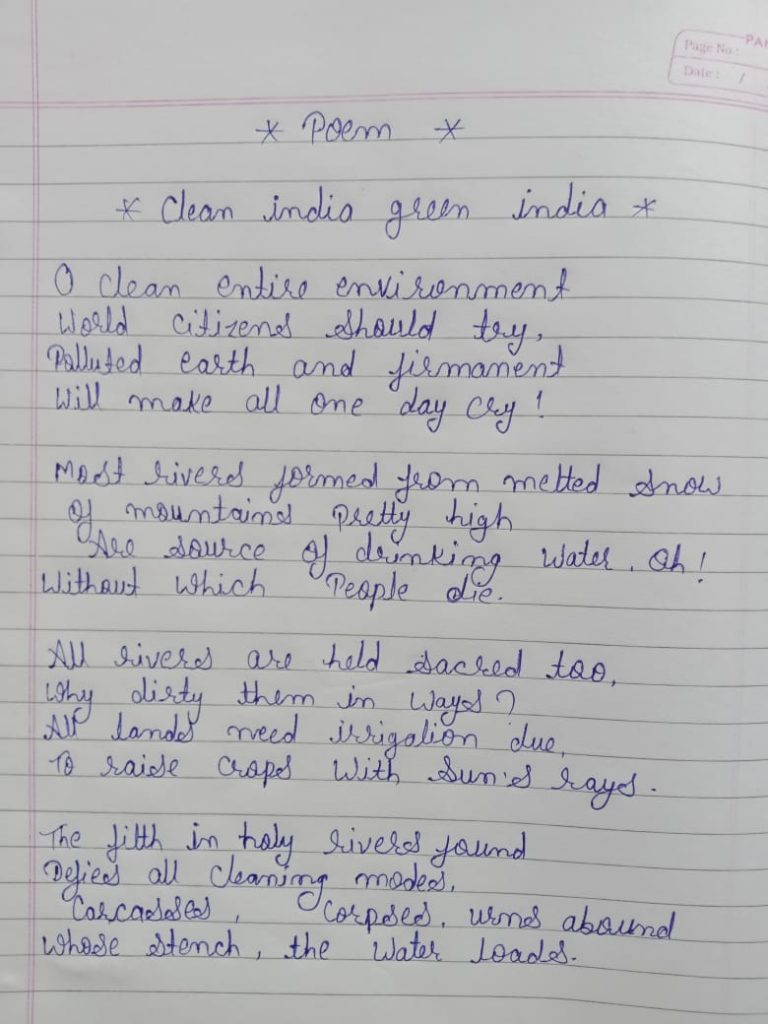 PAR
Page No.:
Date: /
* Poem *
* Clean india green india *
O clean entire environment
World citizens should try,
Polluted earth and firmament
Will make all one day cry!
Most rivers formed from melted snow
Of mountains pretty high
Are source of drinking water. Oh!
Without which People die.
All rivers are held sacred too,
Why dirty them in ways?
All lands need irrigation due,
To raise crops with Sun's rays.
The filth in holy rivers found
Defies all cleaning modes,
Carcasses, Corpses, urns abound
Whose stench, the water loads.